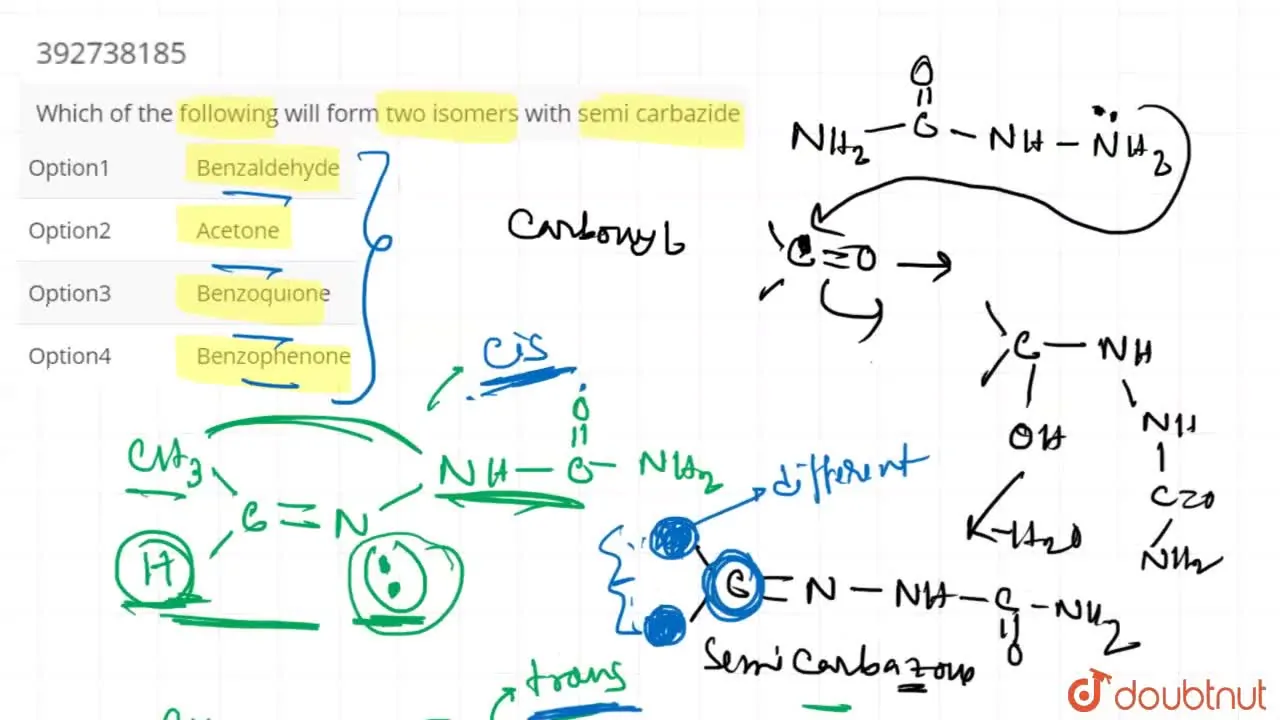 392738185
Which of the following will form two isomers with semi carbazide
Option1 Benzaldehyde
Option2 Acetone
Option3 Benzoquione
Option4 Benzophenone
O
NH2 – C – NH – NH2
Carbonyl
C=O →
C – NH
OH NH
C=O
-H2O NH2
cis
O
CH3 NH – C – NH2
C = N
H
different
C = N – NH – C – NH2
O
Semi carbazone
trans
doubtnut